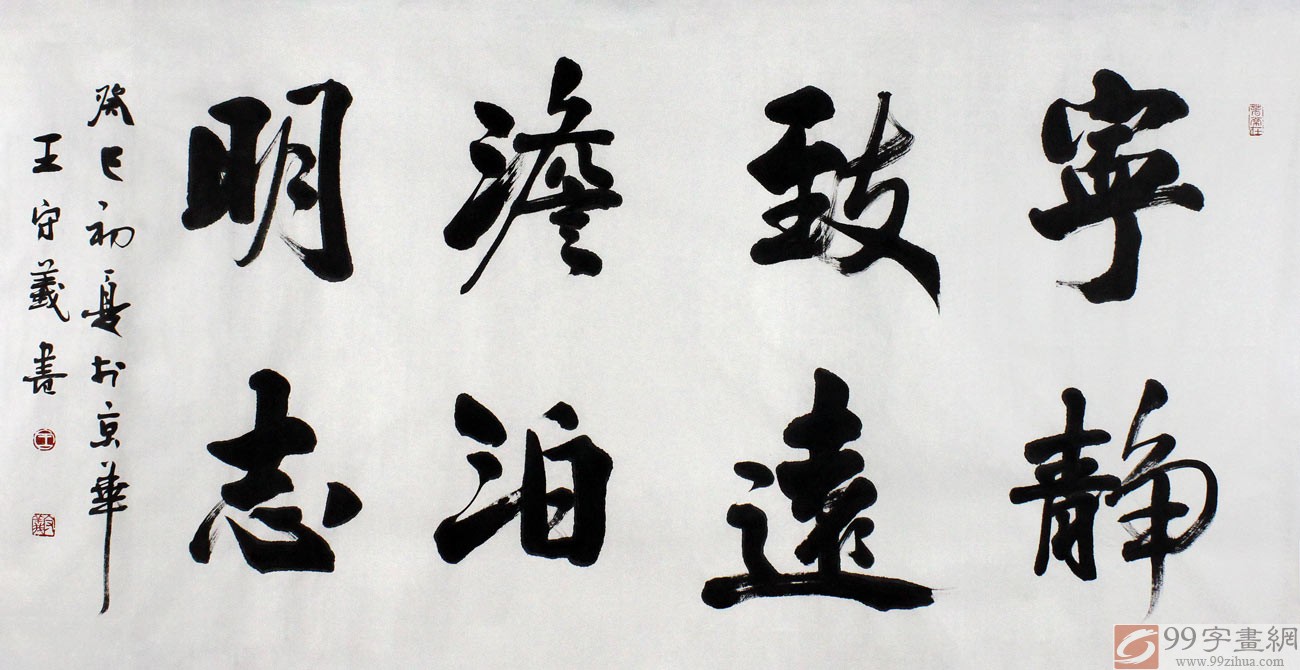 寧静
致遠
澹泊
明志
癸巳初夏於京華
王守義書
99字畫網
www.99zihua.com